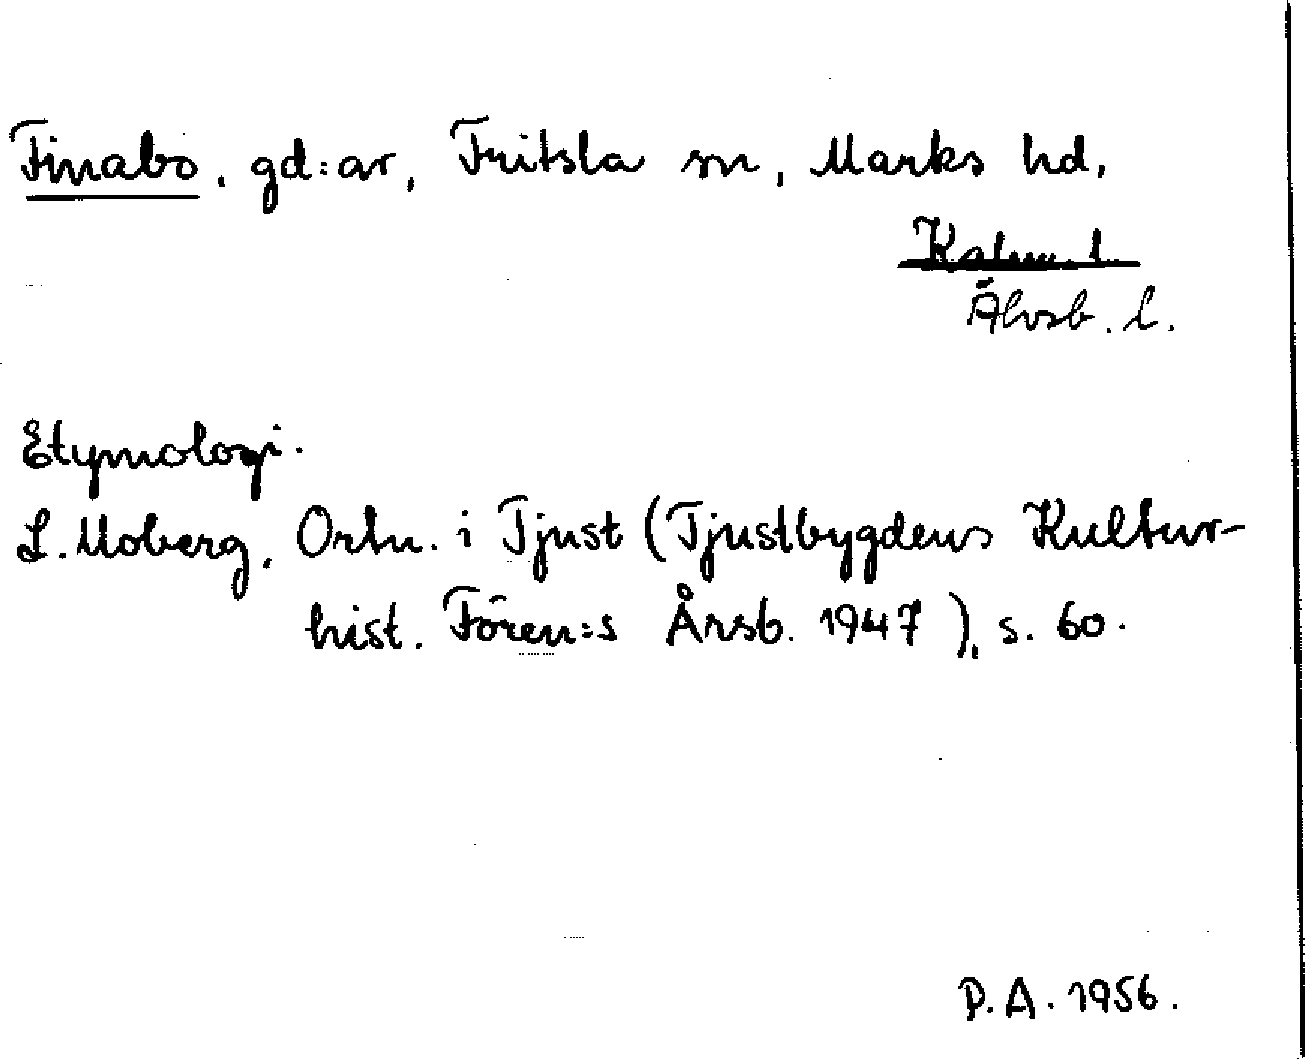 Finabo, gd:ar, Fritsla sn, Marks hd,
Kalm. l.
Älvsb. l.
Etymologi.
L. Moberg, Ortn. i Tjust (Tjustbygdens Kultur-
hist. Fören:s Årsb. 1947), s. 60.
P.A. 1956.